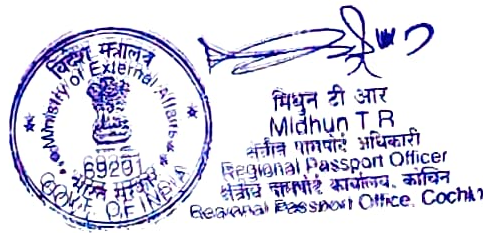 विदेश मंत्रालय
Ministry of External Affairs
69201
भारत सरकार
GOVT. OF INDIA
मिधुन टी आर
Midhun T R
क्षेत्रीय पासपोर्ट अधिकारी
Regional Passport Officer
क्षेत्रीय पासपोर्ट कार्यालय, कोचिन
Regional Passport Office, Cochin